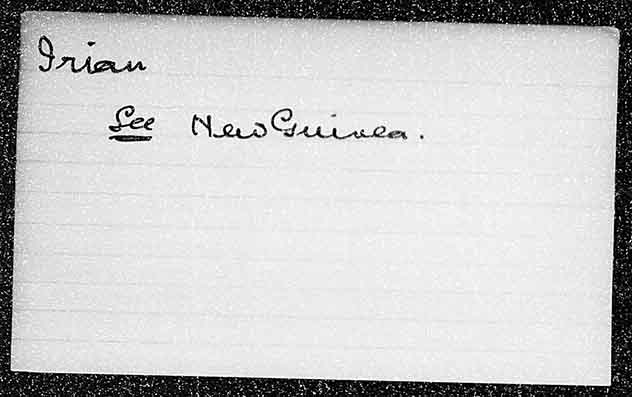 Irian
See New Guinea.